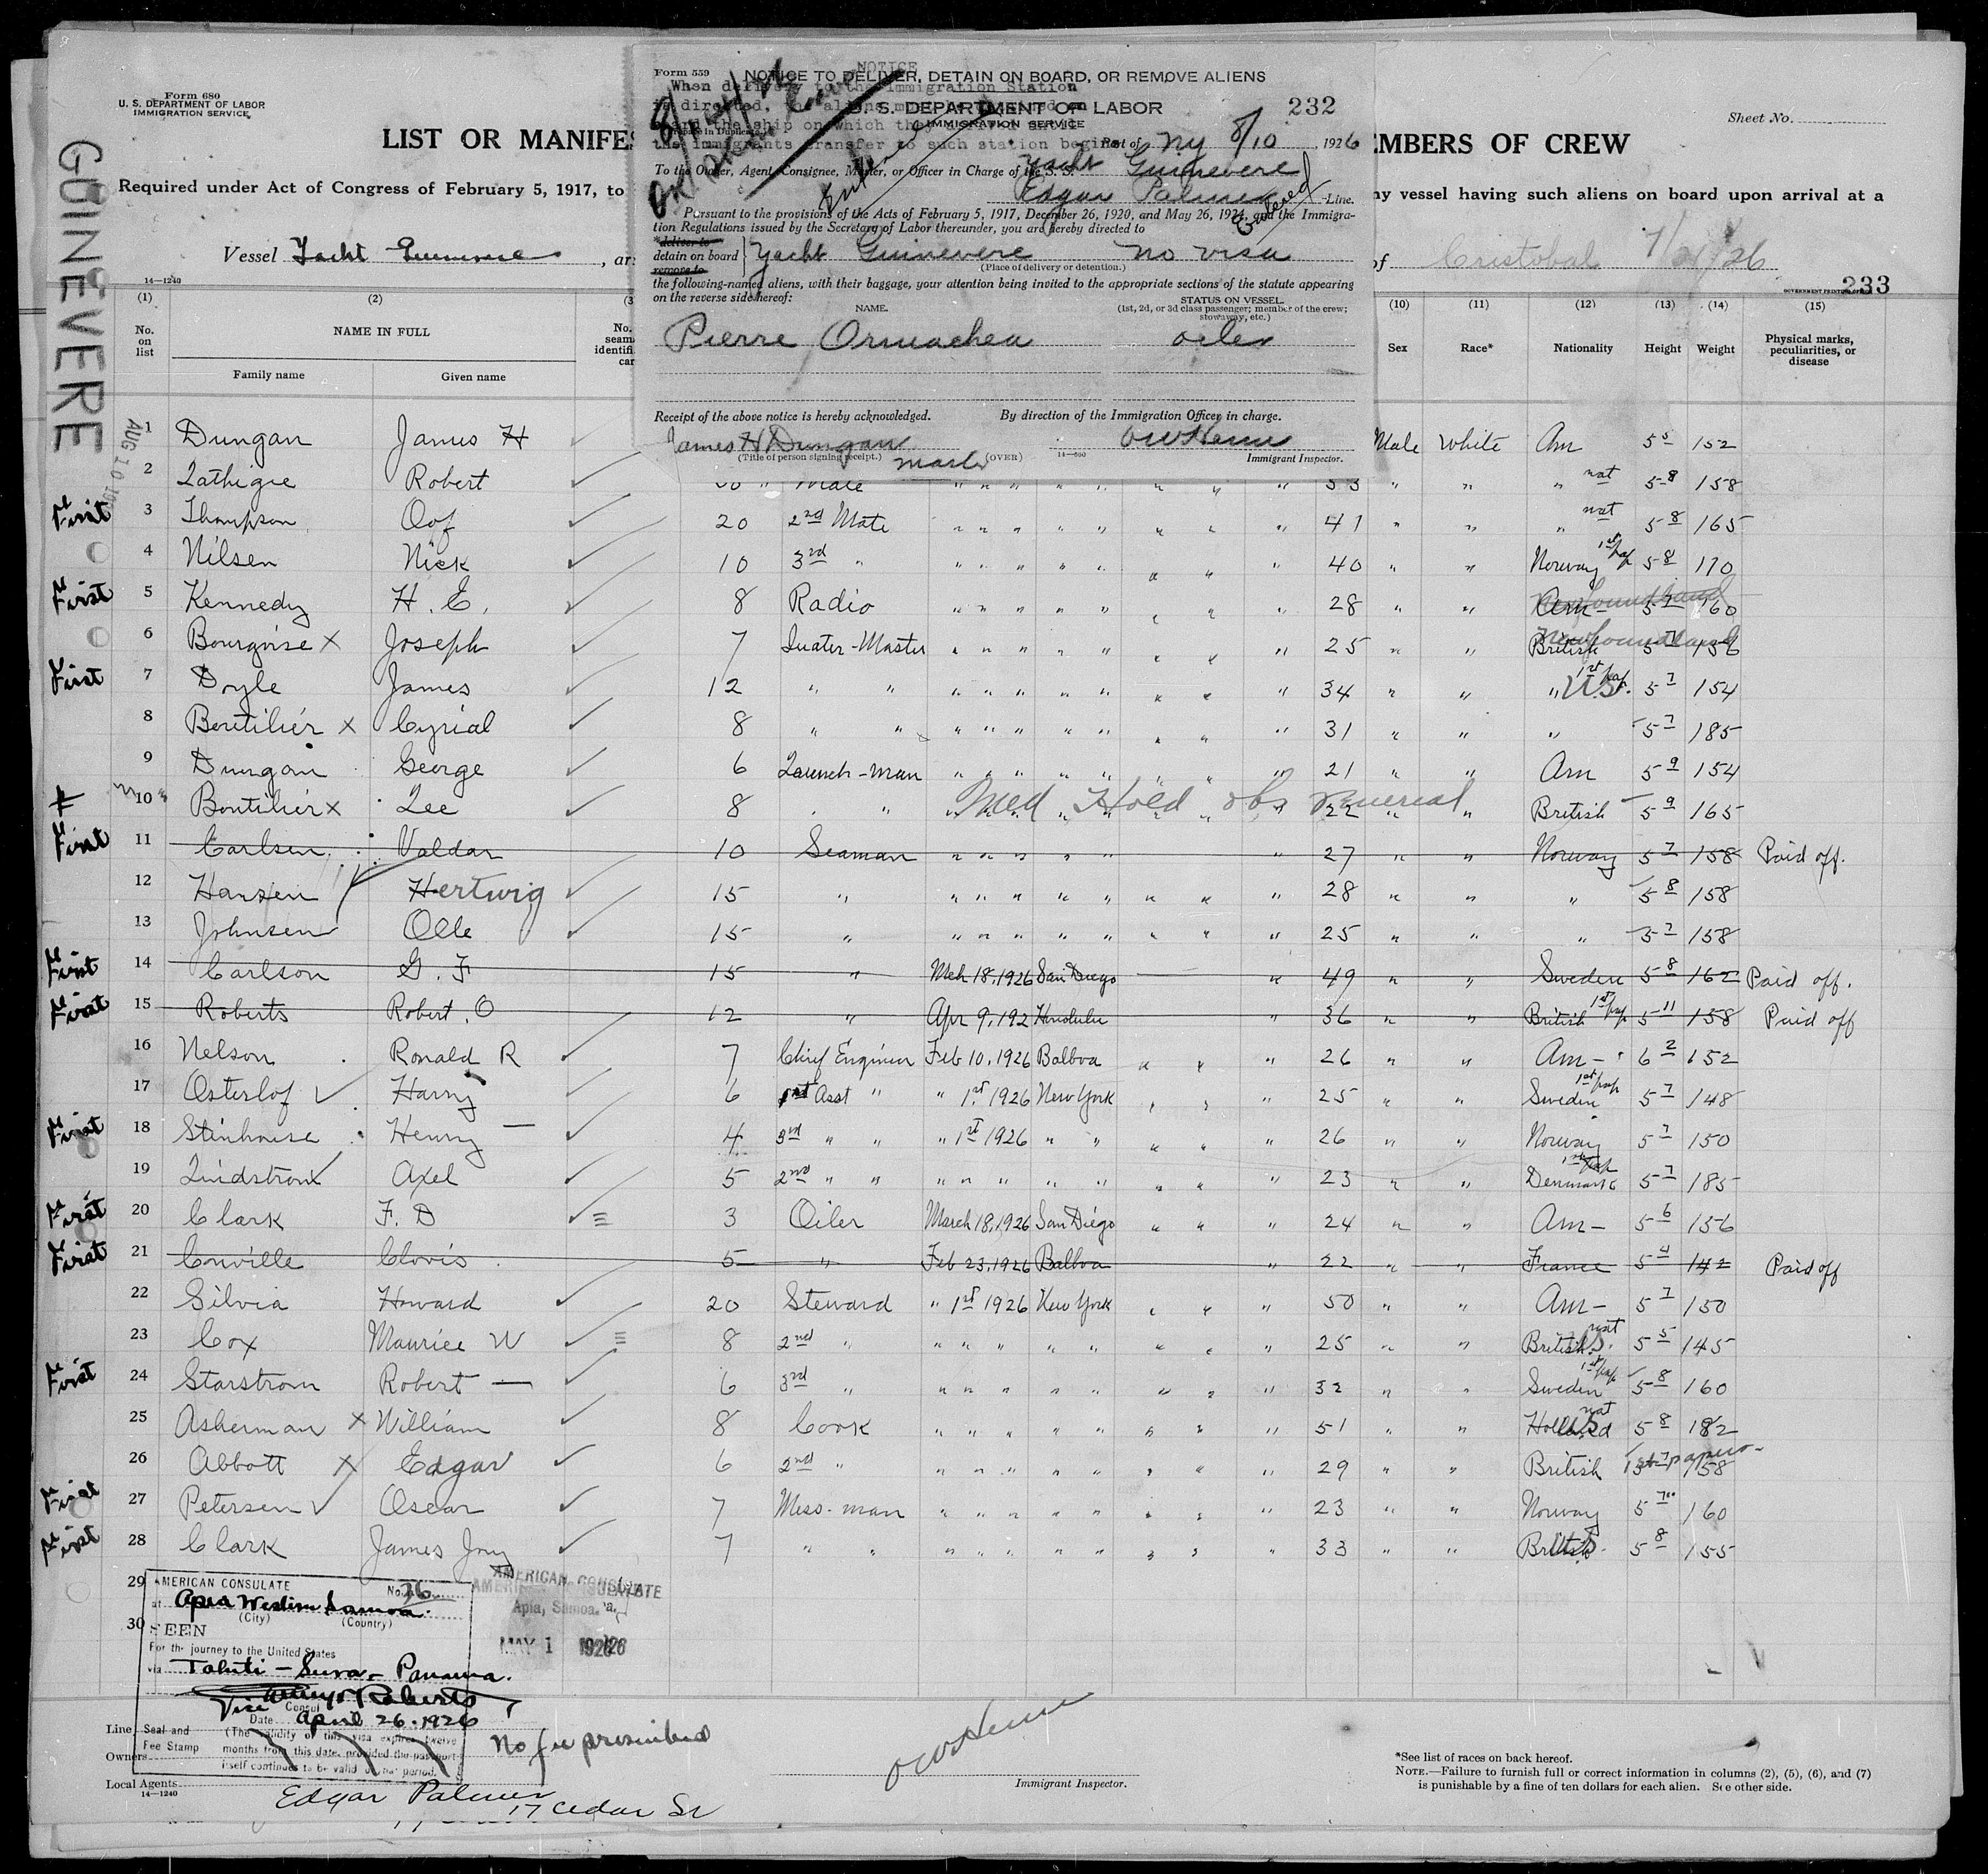 Form 680
U. S. DEPARTMENT OF LABOR
IMMIGRATION SERVICE
LIST OR MANIFES
EMBERS OF CREW
Sheet No.
Required under Act of Congress of February 5, 1917, to
ny vessel having such aliens on board upon arrival at a
Vessel Yacht Guinevere, ar
of Cristobal 7/21/26
14—1240
233
GUINEVERE
AUG 10 19
Form 559
NOTICE
NOTICE TO DELIVER, DETAIN ON BOARD, OR REMOVE ALIENS
When delivery to the Immigration Station
U. S. DEPARTMENT OF LABOR
232
IMMIGRATION SERVICE
the immigrants transfer to such station begins.
Port of NY 8/10, 1926
To the Owner, Agent, Consignee, Master, or Officer in Charge of the S. S. Yacht Guinevere
Edgar Palmer Line.
Pursuant to the provisions of the Acts of February 5, 1917, December 26, 1920, and May 26, 1924, and the Immigra-
tion Regulations issued by the Secretary of Labor thereunder, you are hereby directed to
*deliver to
detain on board Yacht Guinevere no visa
remove to
(Place of delivery or detention.)
the following-named aliens, with their baggage, your attention being invited to the appropriate sections of the statute appearing
on the reverse side hereof:
NAME.
STATUS ON VESSEL
(1st, 2d, or 3d class passenger; member of the crew;
stowaway, etc.)
Pierre Ormachea oiler
Receipt of the above notice is hereby acknowledged. By direction of the Immigration Officer in charge.
James H Dungan
(Title of person signing receipt.) master (OVER)
Immigrant Inspector.
(1) (2) (3 (10) (11) (12) (13) (14) (15)
No. on list NAME IN FULL Sex Race* Nationality Height Weight Physical marks, peculiarities, or disease
Family name Given name
1 Dungan James H Male White Am 5 5 152
2 Lathigee Robert Mate " " " " " " " " 53 " " " nat 5-8 158
First 3 Thompson Oof 20 2nd Mate " " " " " " " " 41 " " " nat 5 8 165
4 Nilsen Nick 10 3rd " " " " " " " " " 40 " " Norway 1st pap 5-8 170
First 5 Kennedy H. E. 8 Radio " " " " " " " " 28 " " Am- Newfoundland 5 7 160
6 Bourgoise x Joseph 7 Quater-Master " " " " " " " " 25 " " British Newfoundland 5 7 156
First 7 Doyle James 12 " " " " " " " " " " 34 " " " US. 1st pap. 5 7 154
8 Boutilier x Cyrial 8 " " " " " " " " " " 31 " " " 5 7 185
9 Dungan George 6 Launch-man " " " " " " " " 21 " " Am 5 9 154
10 Boutilier x Lee 8 " " Med Hold obs venereal 22 " " British 5 9 165
First 11 Carlsen Valdar 10 Seaman " " " " " " 27 " " Norway 5 7 158 Paid off.
12 Hansen Hertwig 15 " " " " " " " " " 28 " " " 5 8 158
13 Johnsen Olle 15 " " " " " " " " " 25 " " " 5 7 158
First 14 Carlson G. F 15 " Mch 18, 1926 San Diego " 49 " " Sweden 5 8 162 Paid off.
First 15 Roberts Robert. O 12 " Apr 9, 192 Honolulu " 36 " " British 1st pap 5 11 158 Paid off
16 Nelson Ronald R 7 Chief Engineer Feb 10, 1926 Balboa " " " 26 " " Am- 6 2 152
17 Osterlof Harry 6 1st Asst " " 1st 1926 New York " " " 25 " " Sweden 1st pap 5 7 148
First 18 Stinhouse Henry — 4 3rd " " " 1st 1926 " " " " " 26 " " Norway 5 7 150
19 Lindstrom Axel 5 2nd " " " " " " " " " " 23 " " Denmark 1st pap 5 7 185
First 20 Clark F. D 3 Oiler March 18, 1926 San Diego " " " 24 " " Am- 5 6 156
First 21 Conville Clovis 5 " Feb 23, 1926 Balboa " 22 " " France 5 4 142 Paid off
22 Silvia Howard 20 Steward " 1st 1926 New York " " " 50 " " Am- 5 7 150
23 Cox Maurice W 8 2nd " " " " " " " " " 25 " " British nat 5 5 145
First 24 Starstrom Robert — 6 3rd " " " " " " " " " 32 " " Sweden 1st pap 5 8 160
25 Asherman x William 8 Cook " " " " " " " " 51 " " Holland nat 5 8 182
26 Abbott x Edgar 6 2nd " " " " " " " " " 29 " " British 1st papers 5 7 158
First 27 Petersen Oscar 7 Mess-man " " " " " " " " 23 " " Norway 5 7 160
First 28 Clark James Jmy 7 " " " " " " " " " " 33 " " British 5 8 155
29
30
AMERICAN CONSULATE No. 26
at Apia Western Samoa.
(City) (Country)
SEEN
For the journey to the United States
via Tahiti - Suva - Panama.
Roberts
Vice Consul
Date April 26. 1926
(The validity of this visa expires twelve
months from this date, provided the passport
itself continues to be valid for that period.
Seal and
Fee Stamp
AMERICAN CONSULATE
Apia, Samoa.
MAY 1 1926
No fee prescribed
Line
Owners
Local Agents
14—1240
Edgar Palmer
17 Cedar St
Immigrant Inspector.
*See list of races on back hereof.
NOTE.—Failure to furnish full or correct information in columns (2), (5), (6), and (7)
is punishable by a fine of ten dollars for each alien. See other side.